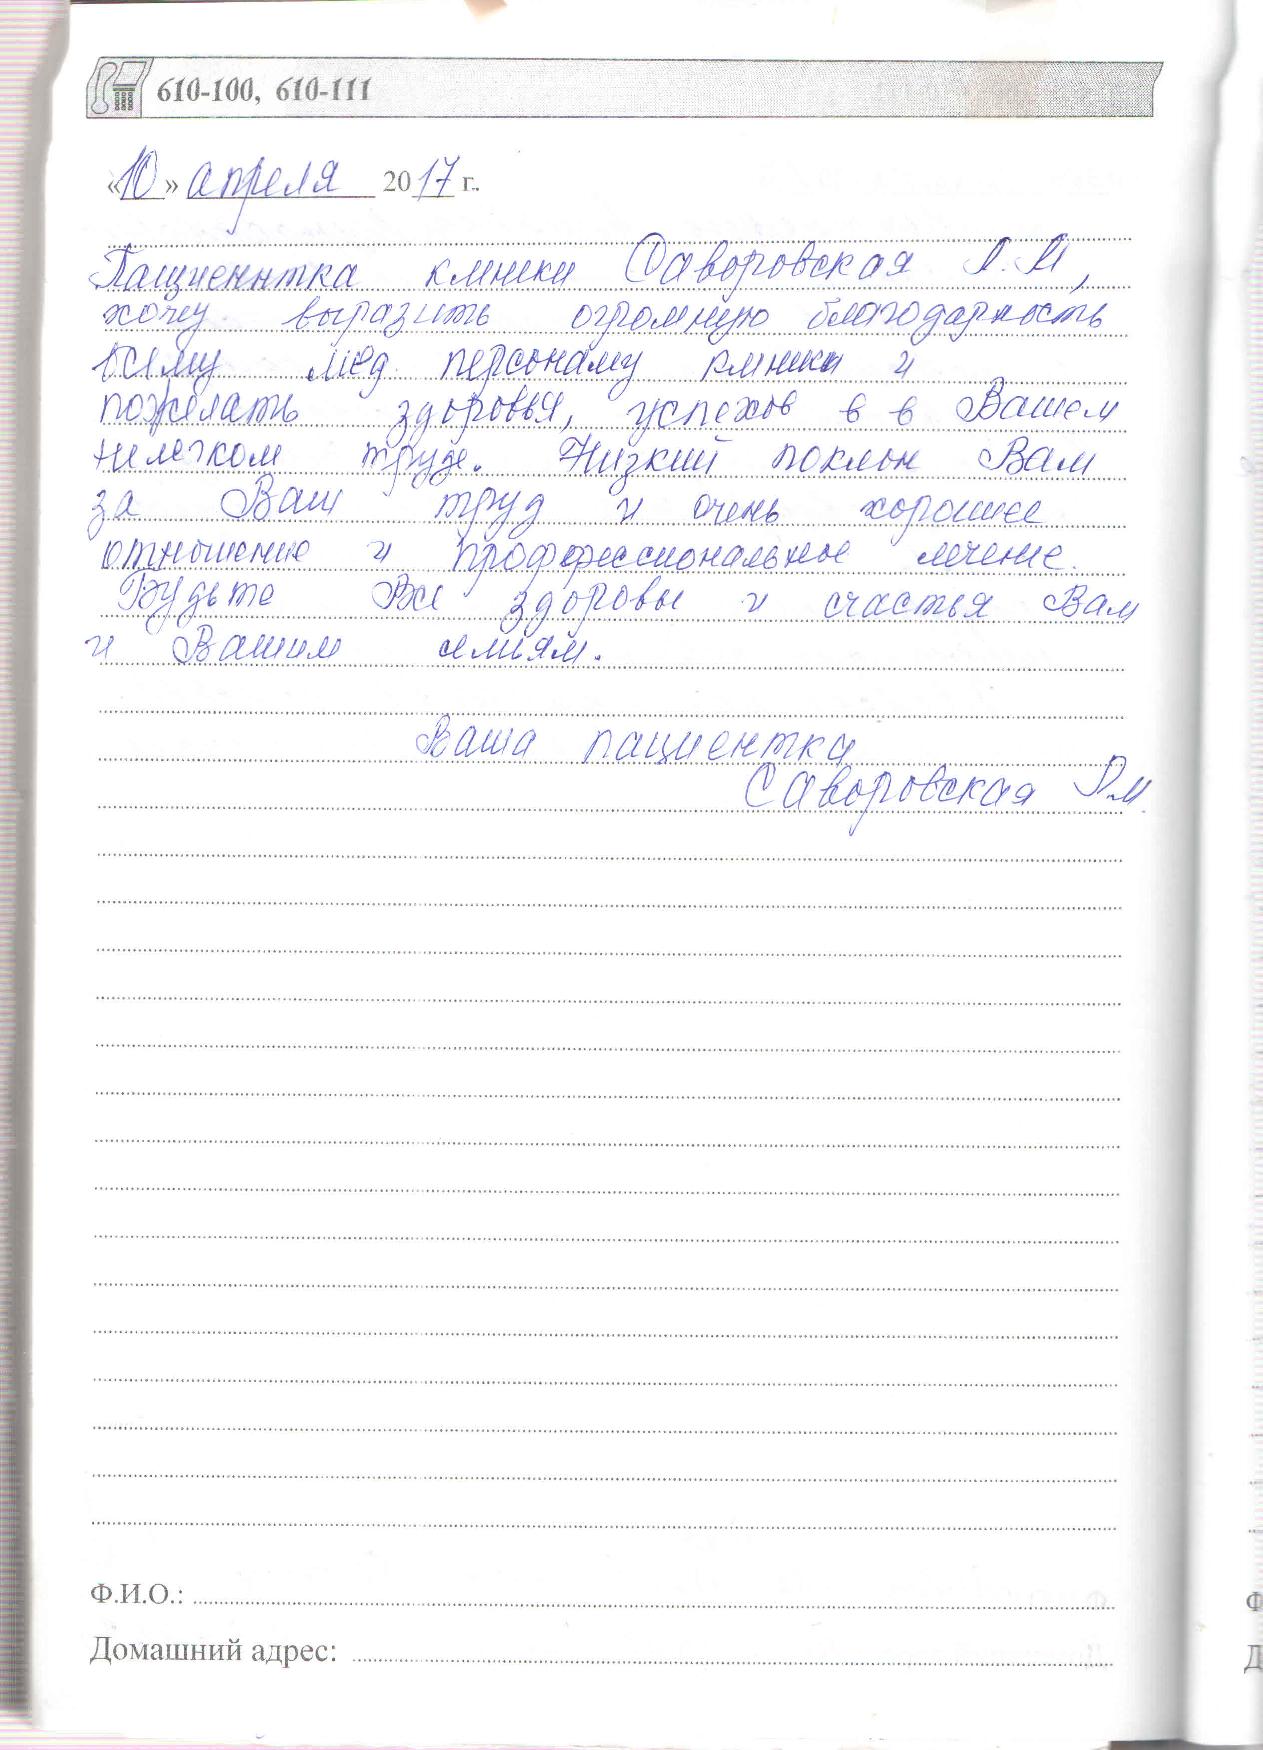 610-100, 610-111
«10» апреля 2017 г.
Пациентка клиники Саворовская Л.М,
хочу выразить огромную благодарность
всему мед. персоналу клиники и
пожелать здоровья, успехов в в Вашем
нелегком труде. Низкий поклон Вам
за Ваш труд и очень хорошее
отношение и профессиональное лечение.
Будьте Все здоровы и счастья Вам
и Вашим семьям.
Ваша пациентка
Саворовская
Ф.И.О.:
Домашний адрес: